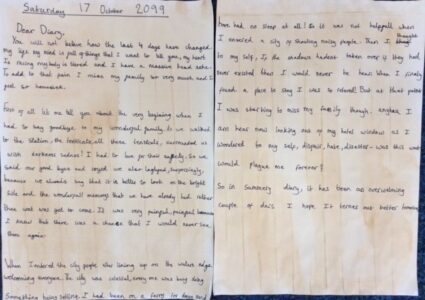 Saturday 17 October 2099
Dear Diary,
You will not believe how the last 4 days have changed
my life. My mind is full of things that I want to tell you, my heart
is racing my body is tierd and I have a massive head ache.
To add to that pain I miss my family so very much and I
feel so homesick.
First of all let me tell you about the very begining when I
had to say goodbye to my wonderful family. As we walked
to the station, the all those tentacle, surrounded us
with darkness sadness! I had to love for their safety. So we
said our good byes and suprisingly,
because we always say that it is better to look on the bright
side and the wonderfull memories that we have already had rather
than what was yet to come. It was very painful, painful because
I knew that there was a chance that I would never see
them again.
When I entered the city people after lining up on the waters edge
welcoming everyone. The city was colossal, every one was busy doing
something being selling. I had been on a ferry for days and
have had no sleep at all! So it was not helpfull when
I entered a city of shouting noisy people. Then I thought
to my self, Is the shadows hadent taken over if they had
never existed then I would never be hear. When I finaly
found a place to stay I was so relieved! But at that point
I was starting to miss my family though. I
am hear now looking out of my hotel window as I
wondered to my self, dispair, hate, disaster - was this what
would plague me forever?
So in Summery diary, it has been an overwelming
couple of days I hope It ternes out better tomorrow